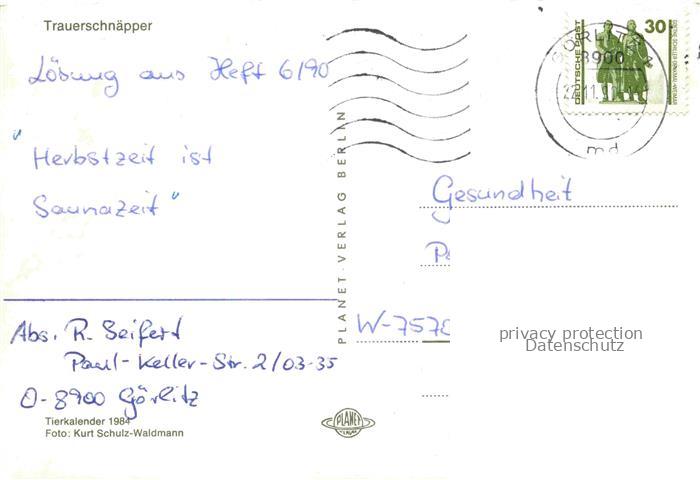 Trauerschnäpper
Lösung aus Heft 6/90
"Herbstzeit ist
Saunazeit"
Abs. R. Seifert
Paul-Keller-Str. 2/03-35
O-8900 Görlitz
Tierkalender 1984
Foto: Kurt Schulz-Waldmann
PLANET-VERLAG BERLIN
PLANET
VERLAG
DEUTSCHE POST
30
GÖRLITZ
8900
md
Gesundheit
W-757
privacy protection
Datenschutz